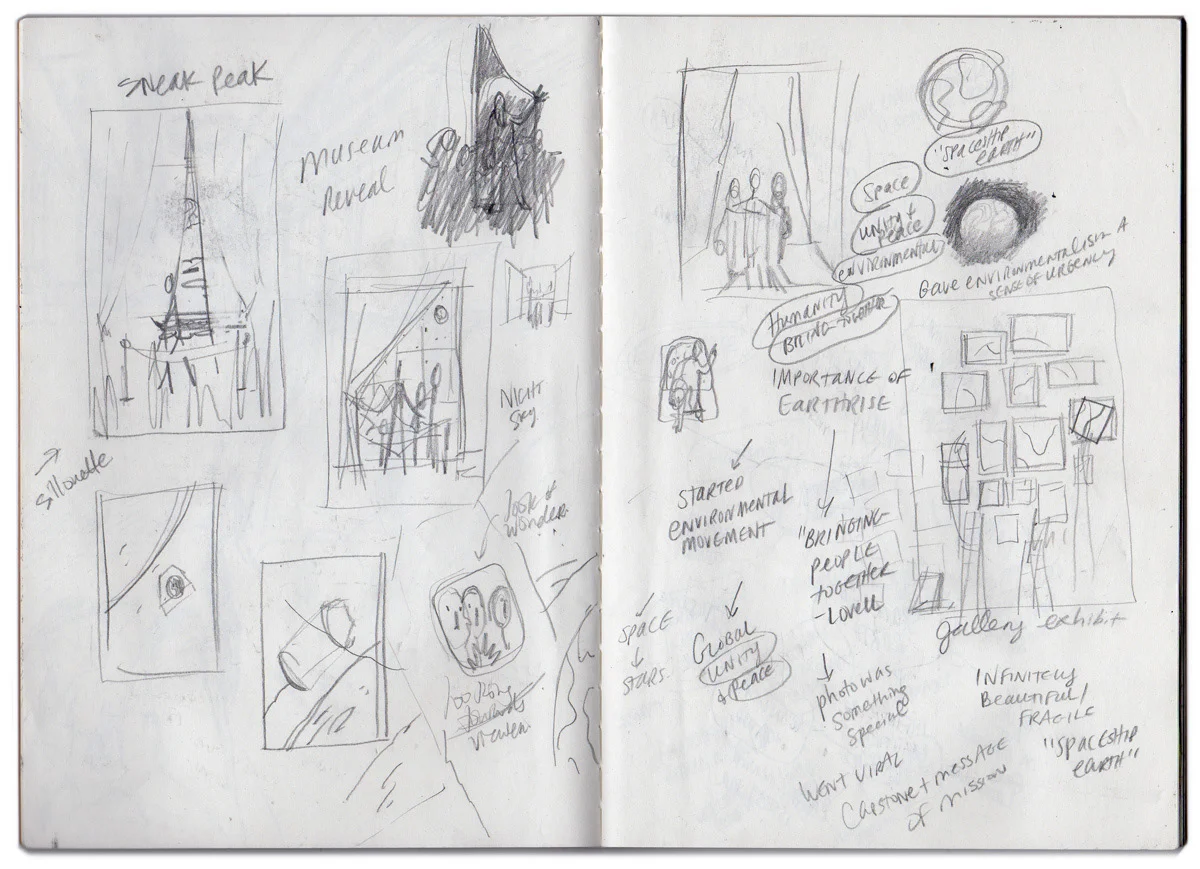 SNEAK PEAK
MUSEUM
REVEAL
NIGHT
SKY
Sillouette
look of
wonder.
looking
towards
viewer.
"SPACESHIP
EARTH"
Space
UNITY +
PEACE
ENVIRONMENTAL
Gave ENVIRONMENTALISM A
SENSE OF URGENCY
Humanity
BRING TOGETHER
IMPORTANCE OF
EARTHRISE
STARTED
ENVIRONMENTAL
MOVEMENT
"BRINGING
PEOPLE
TOGETHER
-LOVELL
SPACE
STARS.
GLOBAL
UNITY
+ PEACE
photo was
something
special
gallery exhibit
INFINITELY
BEAUTIFUL/
FRAGILE
"SPACESHIP
EARTH"
WENT VIRAL
+ MESSAGE
OF MISSION